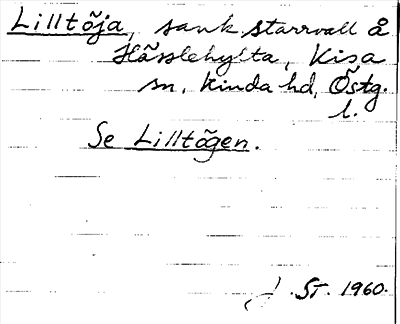 Lilltöja, sank starrvall å
Hässlehylta, Kisa
sn, Kinda hd, Östg.
l.
Se Lilltögen.
J. ST. 1960.